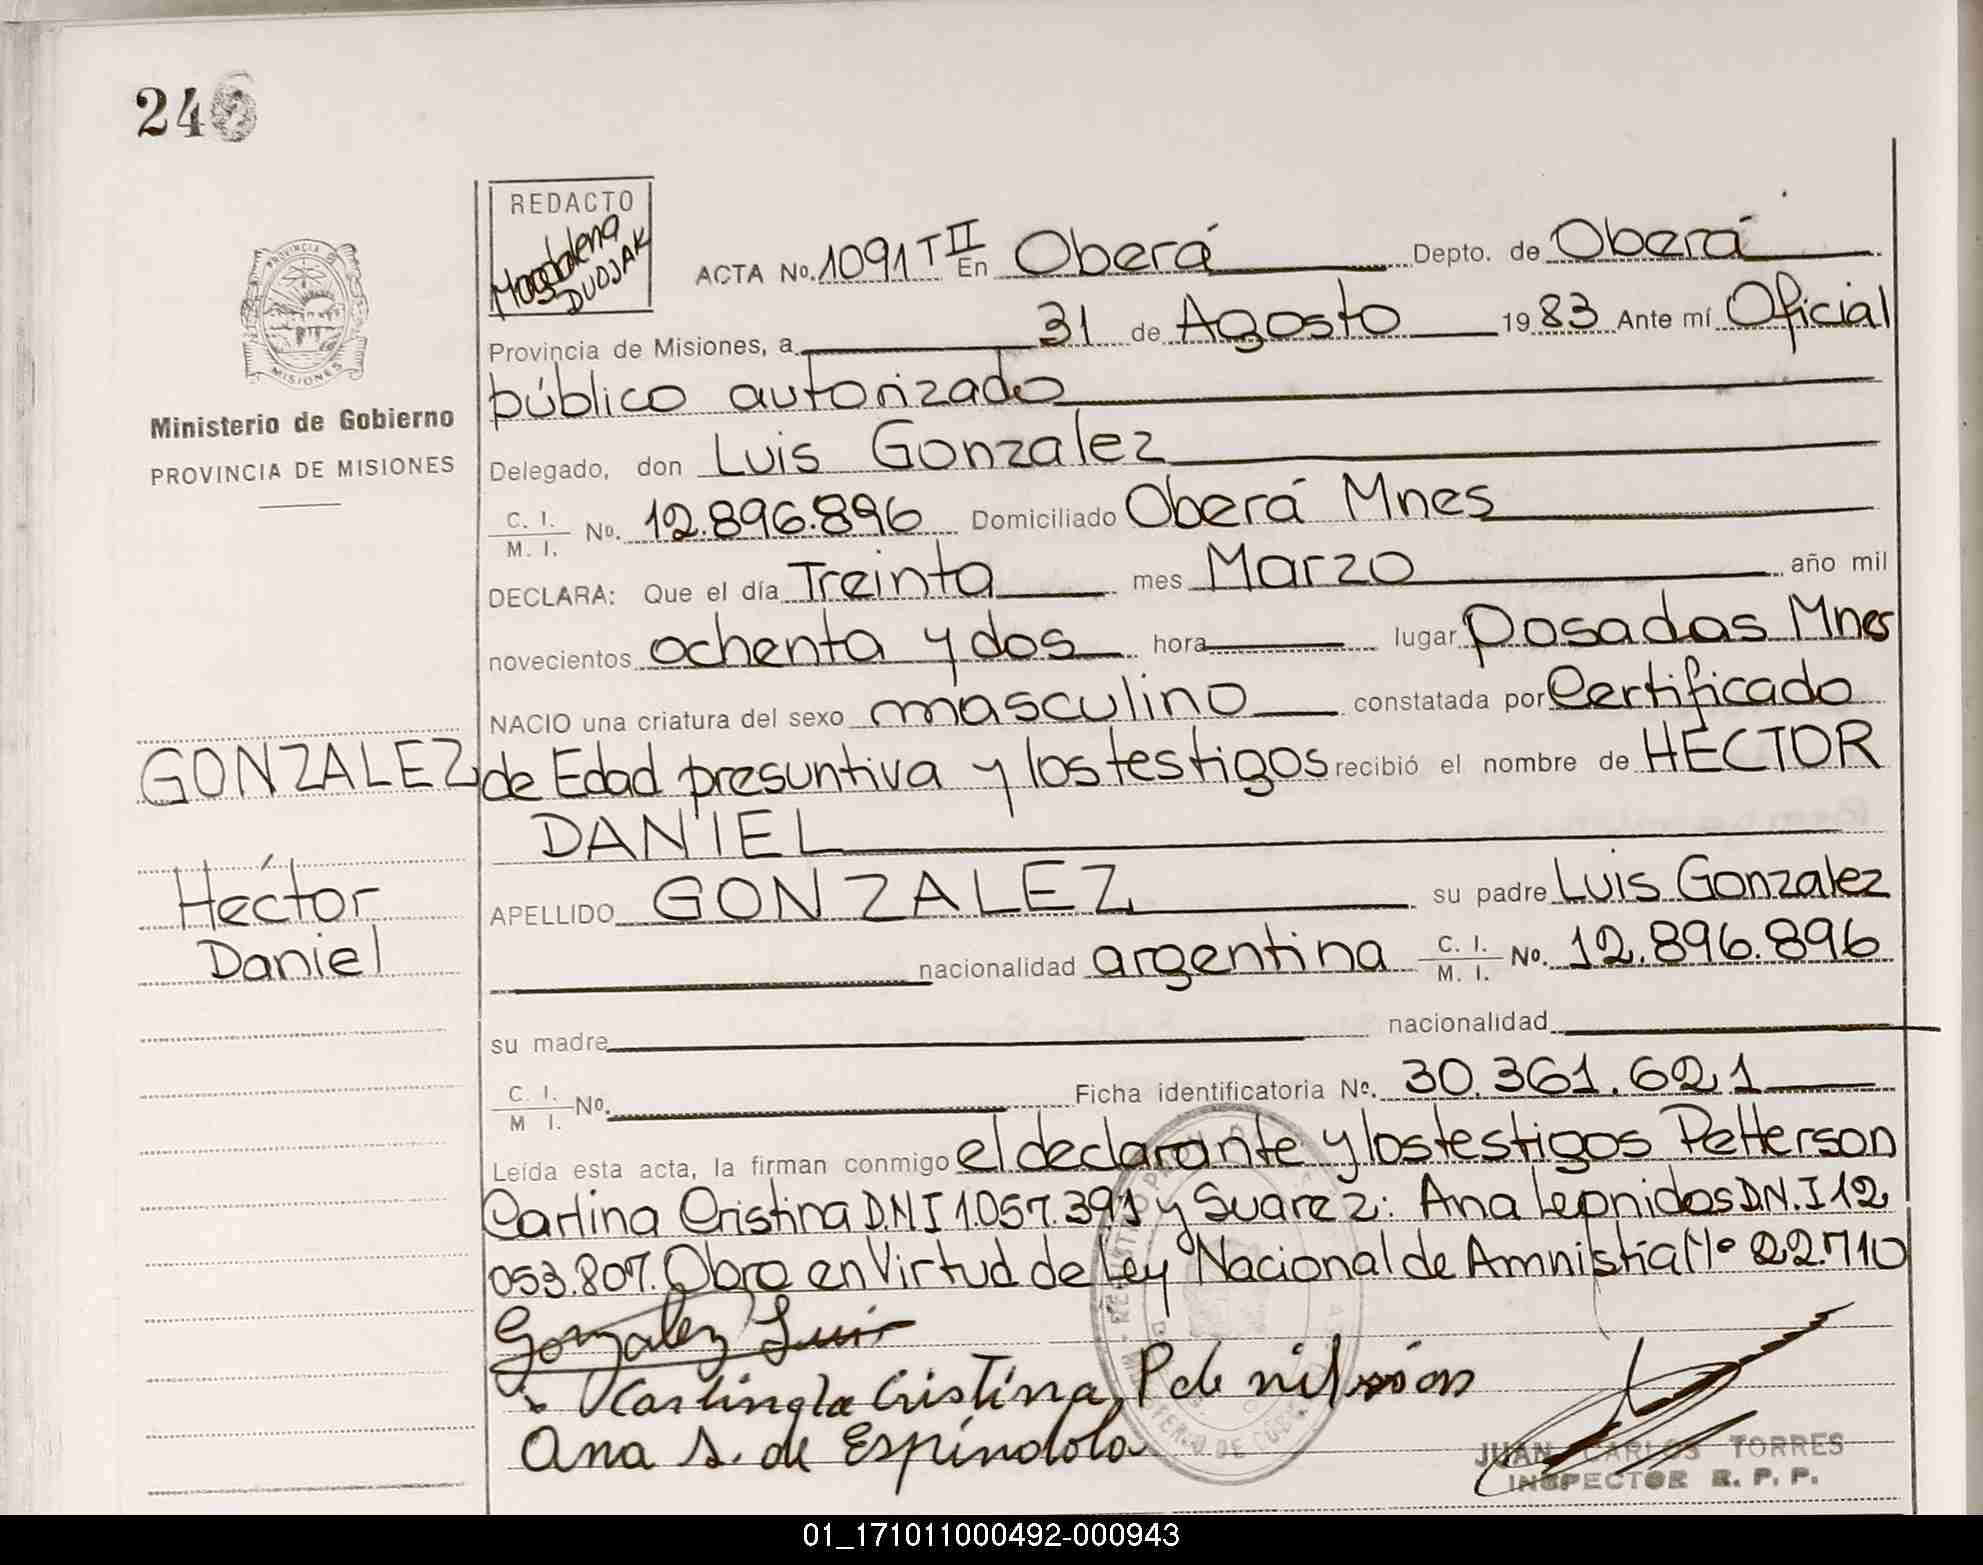 24
REDACTO
Magdalena
DUDJAK
PROVINCIA DE
MISIONES
Ministerio de Gobierno
PROVINCIA DE MISIONES
ACTA No. 1091 T II En Oberá Depto. de Oberá
Provincia de Misiones, a 31 de Agosto 1983 Ante mí Oficial
público autorizado
Delegado, don Luis Gonzalez
C. I. / M. I. No. 12.896.896 Domiciliado Oberá Mnes
DECLARA: Que el día Treinta mes Marzo año mil
novecientos ochenta y dos hora lugar Posadas Mnes
NACIO una criatura del sexo masculino constatada por Certificado
de Edad presuntiva y los testigos recibió el nombre de HECTOR
DANIEL
GONZALEZ
Héctor
Daniel
APELLIDO GONZALEZ su padre Luis Gonzalez
nacionalidad argentina C. I. / M. I. No. 12.896.896
su madre nacionalidad
C. I. / M I. No. Ficha identificatoria No. 30.361.621
Leída esta acta, la firman conmigo el declarante y los testigos Petterson
Carlina Cristina D.N.I 1.057.391 y Suarez: Ana Leonidas D.N.I 12
053.807. Obra en Virtud de Ley Nacional de Amnistía No 22.710
Gonzalez Luis
Cristina P de
Ana S. de Espíndola
JUAN CARLOS TORRES
INSPECTOR R. P. P.
01_171011000492-000943